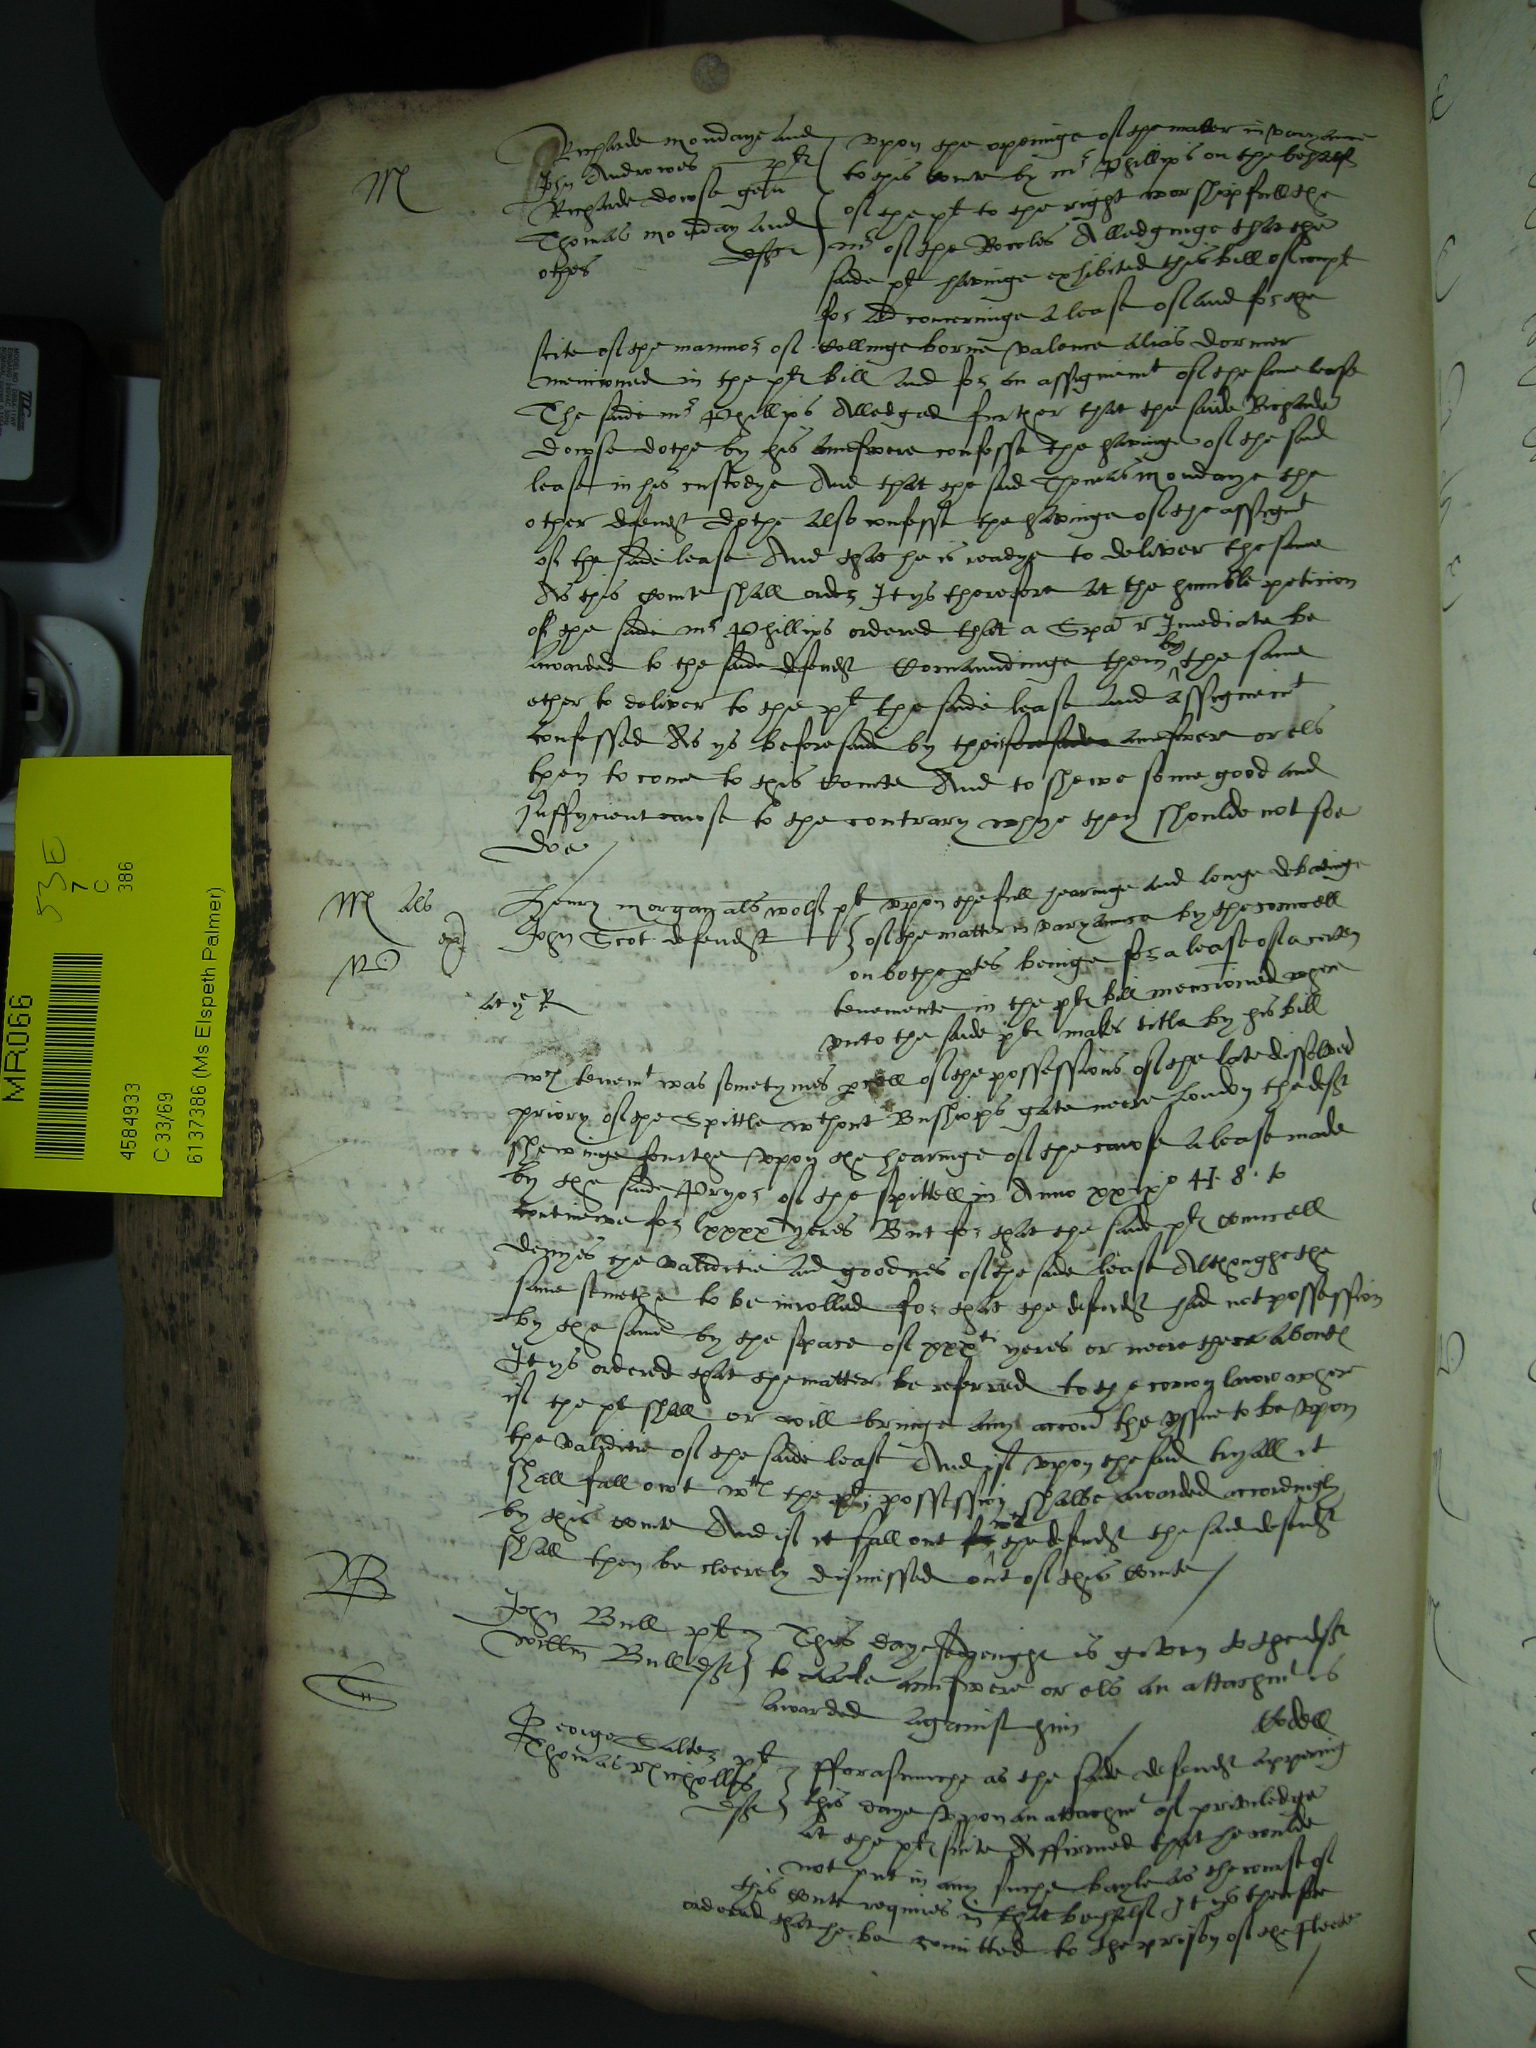 M
Richarde Mondaye and
John Androwes plt
Richarde Dowse gen
Thomas Monday and
others deftes
upon the openinge of the matter in varyance
to this Courte by mr Phillips on the behalf
of the plt to the right worshipfull the
mr of the Rooles Alledginge that the
saide plt havinge exhibited this bill of compt
for and concerninge a lease of and for the
scite of the mannor of Collingeborne Valence alias Dormer
mencioned in the plt bill and for an assignemt of the same lease
The saide mr Phillips Alledged further that the saide Richarde
Dowse dothe by his Aunswere confesse the havinge of the said
lease in his custodye And that the said Thomas Mondaye the
other defendt dothe also confesse the havinge of the assignmt
of the saide lease And that he is readye to deliver the same
As this Courte shall order It ys therefore at the humble peticion
of the saide mr Phillips ordered that a Spa r Imediate be
awarded to the saide defendt Comaundinge them by the same
ether to deliver to the plt the saide lease and Assignemt
confessed As ys beforesaid by their foresaide Aunswere or els
then to come to this Courte And to shewe some good and
suffycient cause to the contrary whye they shoulde not soe
doe
M als
ex
W
at ij R
Henry Morgan als Wolf plt
John Scot defendt
upon the full hearinge and longe debatinge
of the matter in varyance by the councell
on bothe ptes beinge for a lease of a certen
tenemente in the plt bill mencioned when
unto the saide plt makes title by his bill
wch tenemt was sometymes pcell of the possessions of the late dissolved
priory of the Spittle wthout Busshops gate neere London the deft
shewinge fourthe upon the hearinge of the cause A lease made
by the saide Pryor of the Spittell in Anno xxixo H. 8. to
contineue for lxxxx yeres But for that the saide plt councell
denyes the validitie and goodnes of the saide lease Althoughe the
same semethe to be inrolled for that the defendt had not possession
by the same by the space of xxxti yeres or neere there aboute
It ys ordered that the matter be referred to the comon lawe where
if the plt shall or will bringe any accon the yssue to be upon
the validitie of the saide lease And if upon the said tryall it
shall fall owt wth the plt possession shalbe awarded accordingly
by this courte And if it fall out for wth the defendt the said defendt
shall then be cleerely dismissed out of this Courte
B
John Bull plt
Willm Bull deft
This daye sevenight is given to the deft
to make Aunswere or els an attachmt is
awarded against him
Cordell
George Salter plt
Thomas Nicholles
deft
fforasmuche as the saide defendt appering
this daye uppon an attachmt of priviledge
at the plt suite Affirmed that he coulde
not put in any suche bayle as the course of
this Courte requires in that behalf It ys therefore
ordered that he be comitted to the prison of the Fleete
MR066
53D
7
C
386
4584933
C 33/69
6137386 (Ms Elspeth Palmer)